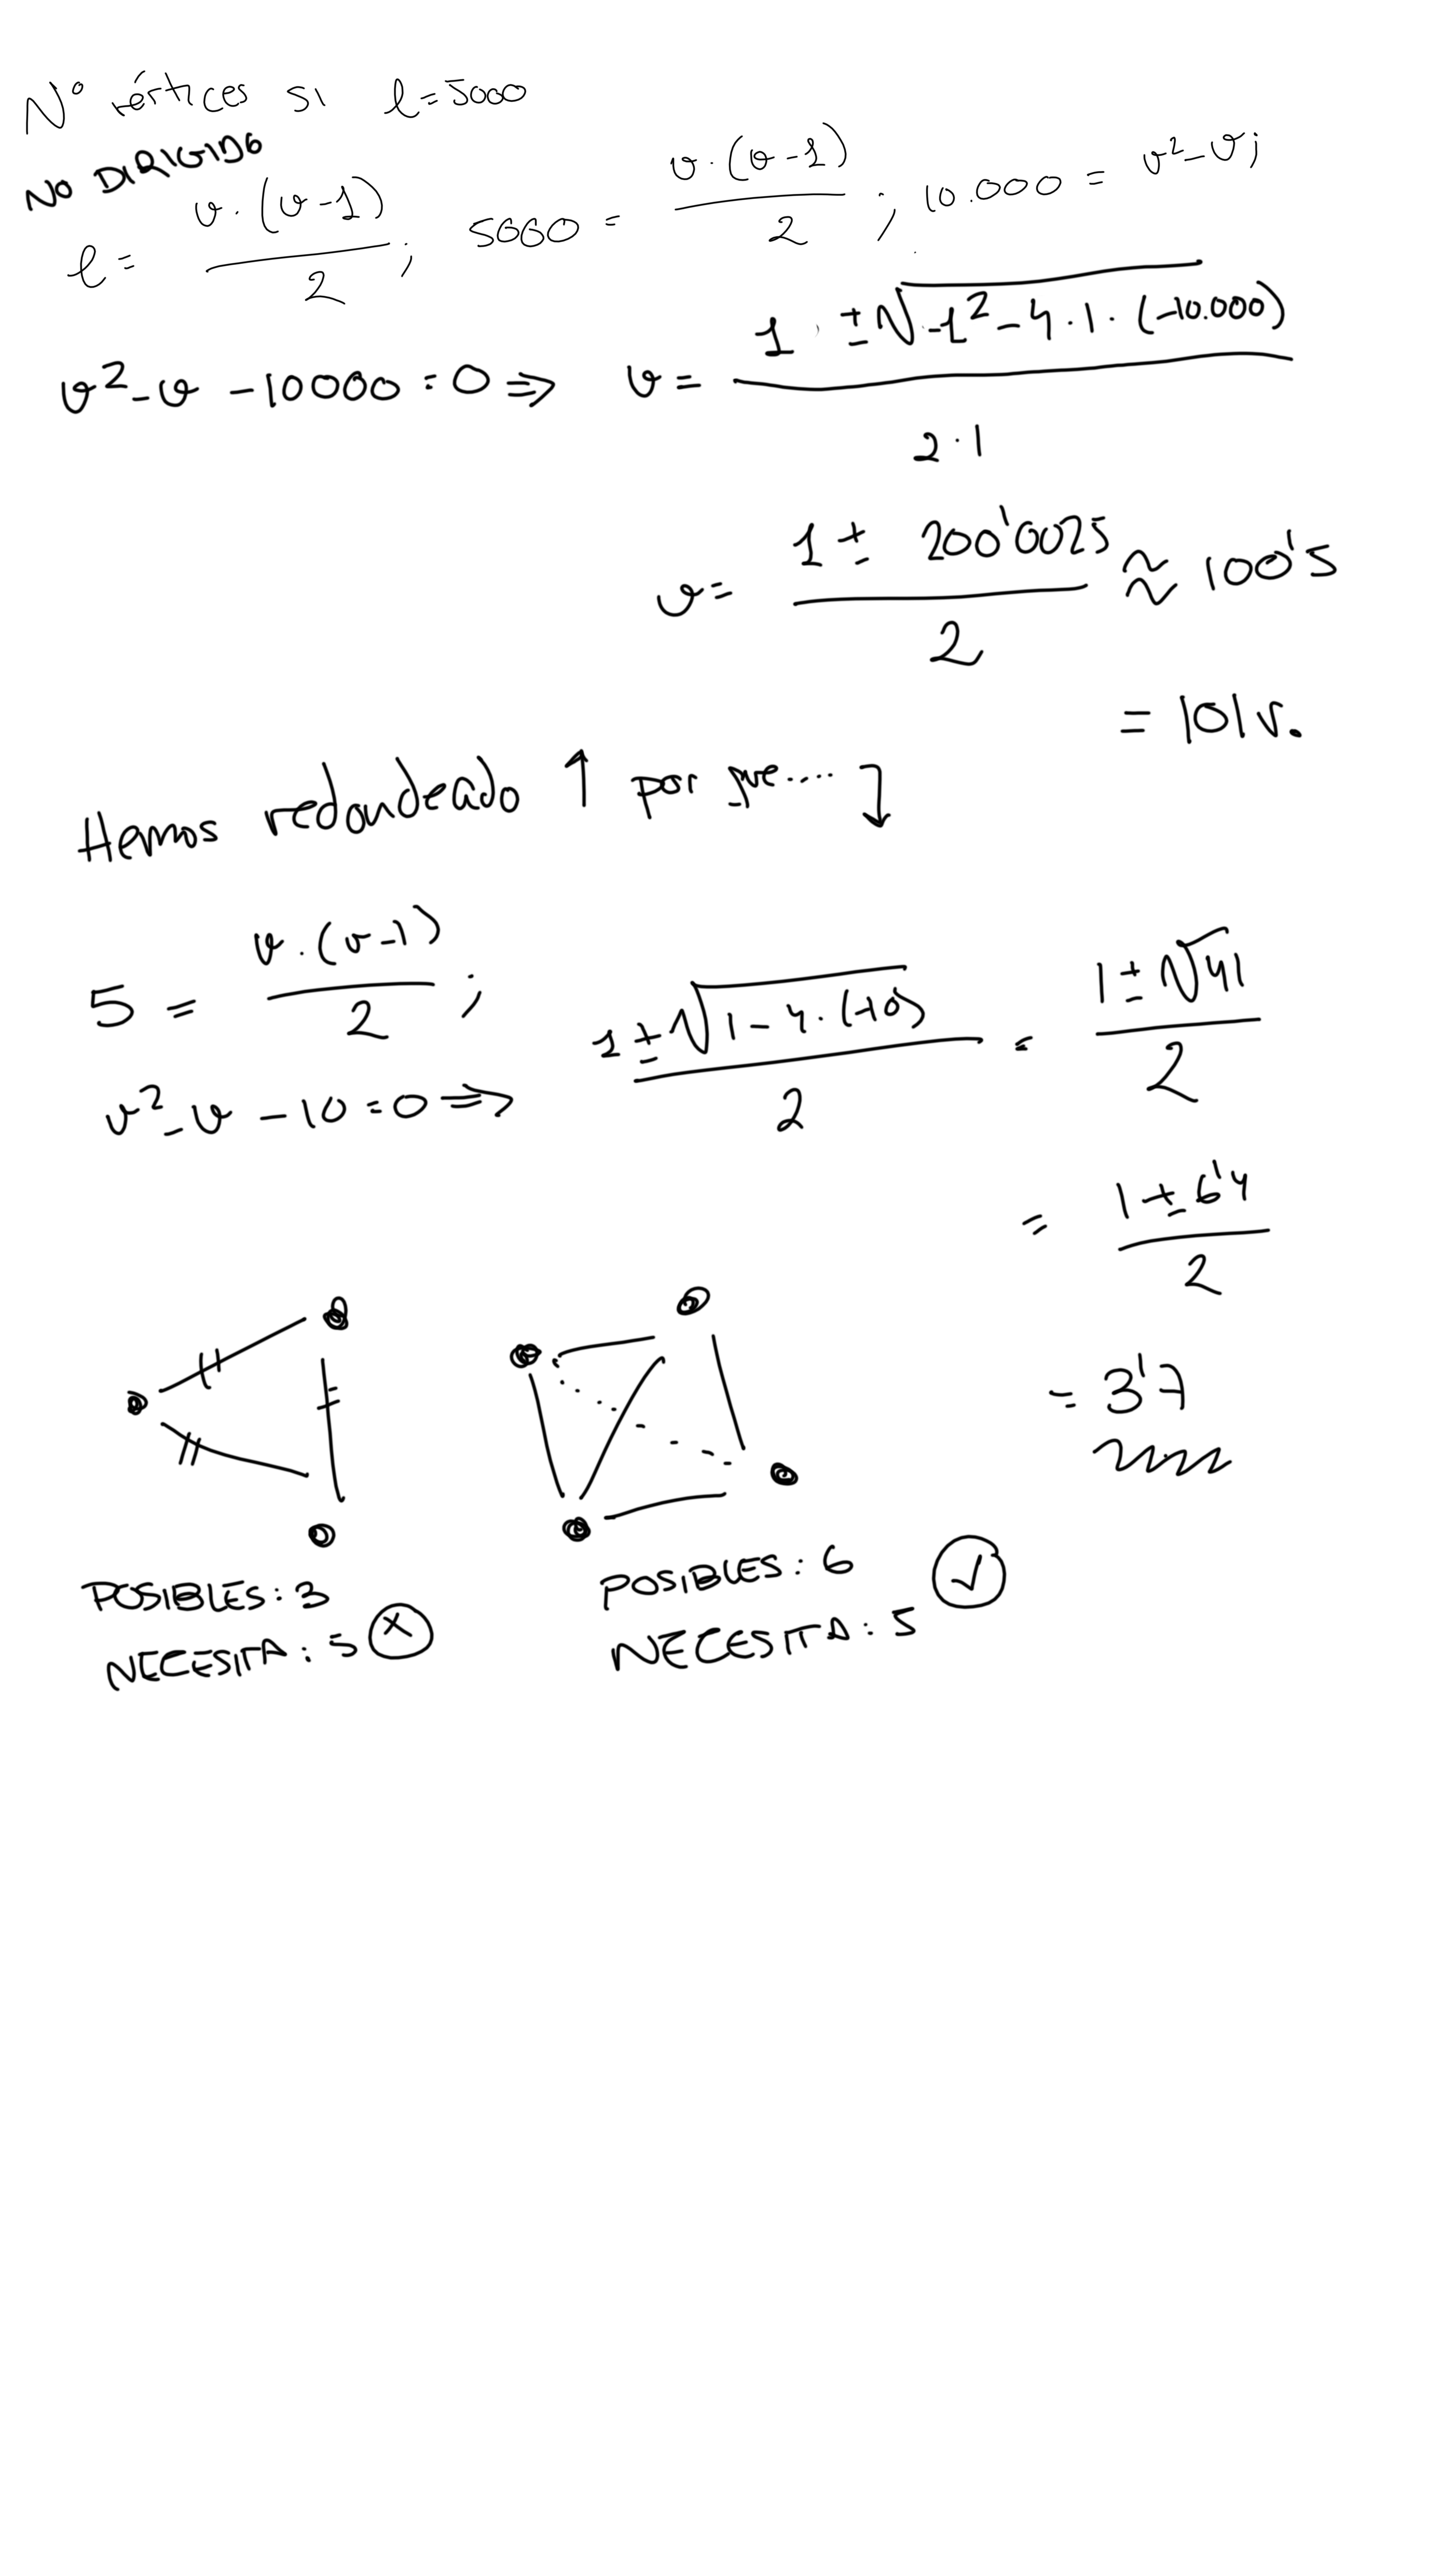 Nº vértices si l=5000
NO DIRIGIDO
l = v·(v-1)/2 ; 5000 = v·(v-1)/2 ; 10.000 = v²-v;
v²-v-10000=0 ⇒ v = (1 ± √(-1²-4·1·(-10.000)))/(2·1)
v = (1 ± 200'0025)/2 ≈ 100'5
= 101 v.
Hemos redondeado ↑ por que.... ↓
5 = v·(v-1)/2 ;
v²-v-10=0 ⇒ (1 ± √(1-4·(-10)))/2 = (1 ± √41)/2
= (1 ± 6'4)/2
= 3'7
POSIBLES: 3
NECESITA: 5 ⓧ
POSIBLES: 6 ✓
NECESITA: 5